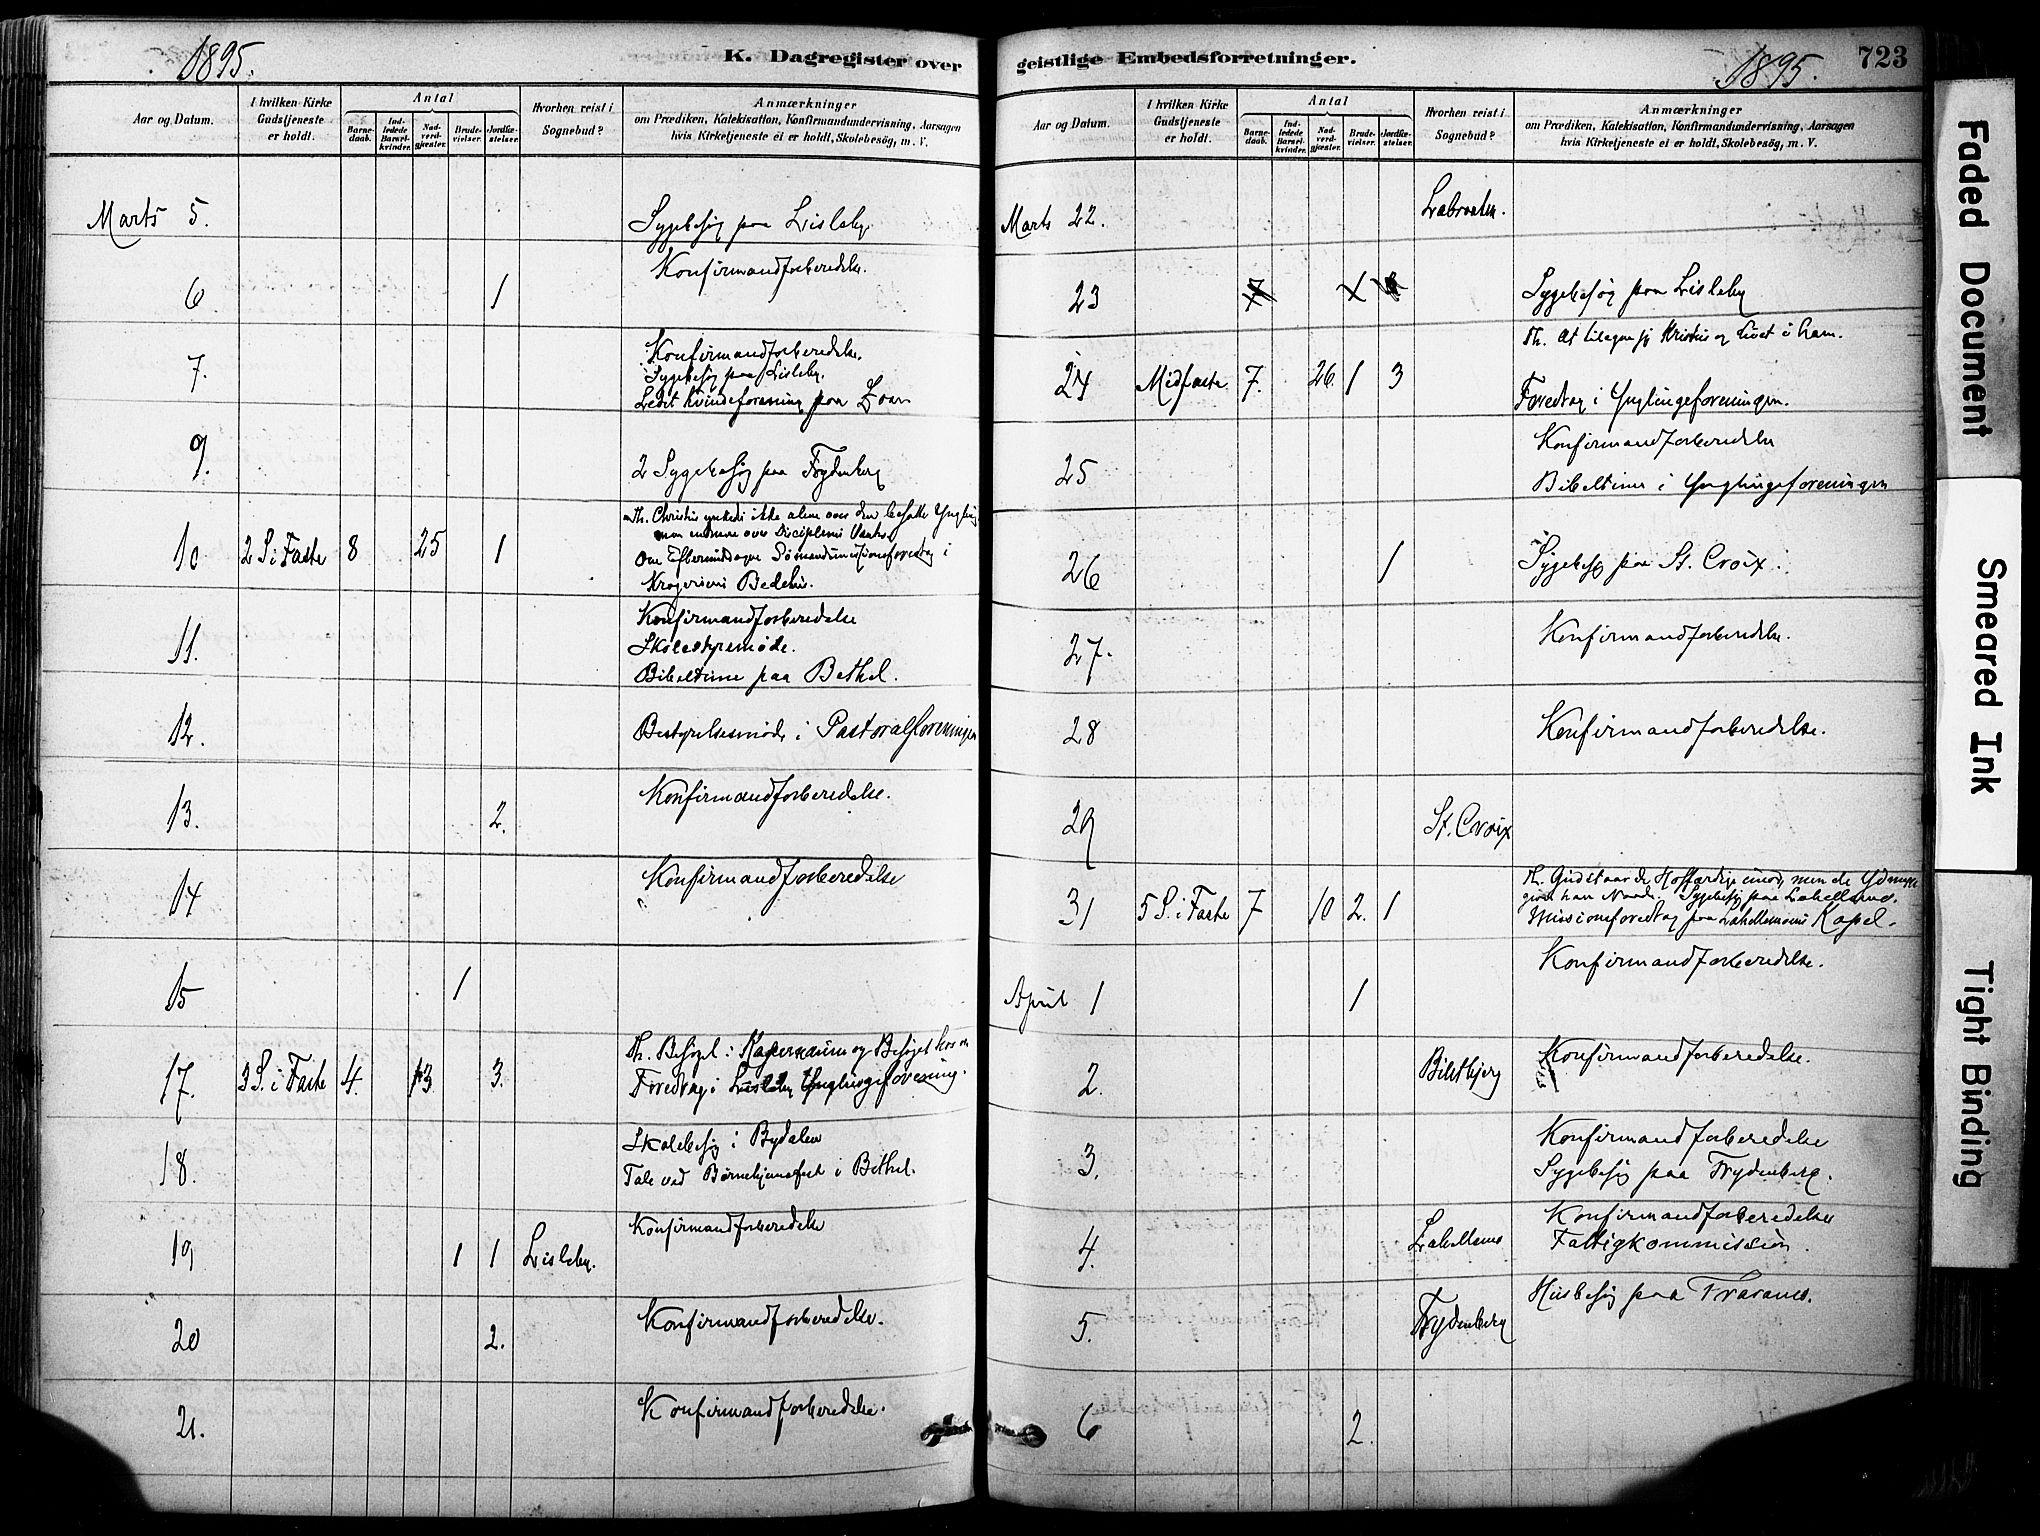 1895.
K. Dagregister over
Aar og Datum.
I hvilken Kirke Gudstjeneste er holdt.
Antal
Barnedaab.
Indledede Barselkvinder.
Nadverdgjæster.
Brudevielser.
Jordfæstelser.
Hvorhen reist i Sognebud?
Anmærkninger
om Prædiken, Katekisation, Konfirmandundervisning, Aarsagen
hvis Kirketjeneste ei er holdt, Skolebesög, m. V.
Marts 5. Sygebesøg paa Lisleby
6 1 Konfirmandforberedelse.
7. Konfirmandforberedelse.
Sygebesøg paa Lisleby.
Ledet Kvindeforening paa Zoar
9. 2 Sygebesøg paa Frydenberg
10 2 S. i Faste 8 25 1 Th. Christus ynkedes ikke alene over den besatte Yngling
men endmere over Disciplenes Vantro
Om Eftermiddagen Sømandsmissionsforedrag i
Bedehus.
11. Konfirmandforberedelse
Skolestyremøde.
Bibeltime paa Bethel.
12. Bestyrelsesmøde i Pastoralforeningen
13. 2. Konfirmandforberedelse.
14 Konfirmandforberedelse
15 1
17. 3 S. i Faste 4. 13 3. Th. Besøget i Kapernaum og Besøget hos os
Foredrag i Lisleby Ynglingeforening.
18. Skolebesøg i Bydalen
Tale ved Børnehjemsfest i Bethel.
19 1 1 Lisleby. Konfirmandforberedelse
20 2. Konfirmandforberedelse.
21. Konfirmandforberedelse.
geistlige Embedsforretninger.
1895.
723
Aar og Datum.
I hvilken Kirke Gudstjeneste er holdt.
Antal
Barnedaab.
Indledede Barselkvinder.
Nadverdgjæster.
Brudevielser.
Jordfæstelser.
Hvorhen reist i Sognebud?
Anmærkninger
om Prædiken, Katekisation, Konfirmandundervisning, Aarsagen
hvis Kirketjeneste ei er holdt, Skolebesög, m. V.
Marts 22. Labraaten.
23 Sygebesøg paa Lisleby
24 Midfaste 7. 26. 1 3 Th. At tilegne sig Kristus og Livet i ham.
Foredrag i Ynglingeforeningen.
25 Konfirmandforberedelse
Bibeltime i Ynglingeforeningen
26 1 Sygebesøg paa St. Croix.
27. Konfirmandforberedelse.
28 Konfirmandforberedelse.
29 St. Croix
31 5 S. i Faste 7 10 2. 1 Th. Gud staar de Hoffærdige imod, men de Ydmyge
giver han Naade. Sygebesøg paa
Missionsforedrag paa Kapel.
April 1 1 Konfirmandforberedelse.
2. Konfirmandforberedelse.
3. Konfirmandforberedelse
Sygebesøg paa Frydenberg.
4. Konfirmandforberedelse
Fattigkommission.
5. Frydenberg Husbesøg paa Traranes.
6 2.
Faded Document
Smeared Ink
Tight Binding